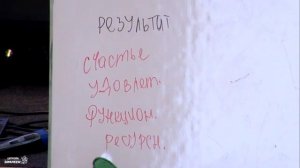 РЕЗУЛЬТАТ
СЧАСТЬЕ
УДОВЛЕТ.
ФУНКЦИОН.
РЕСУРСН.